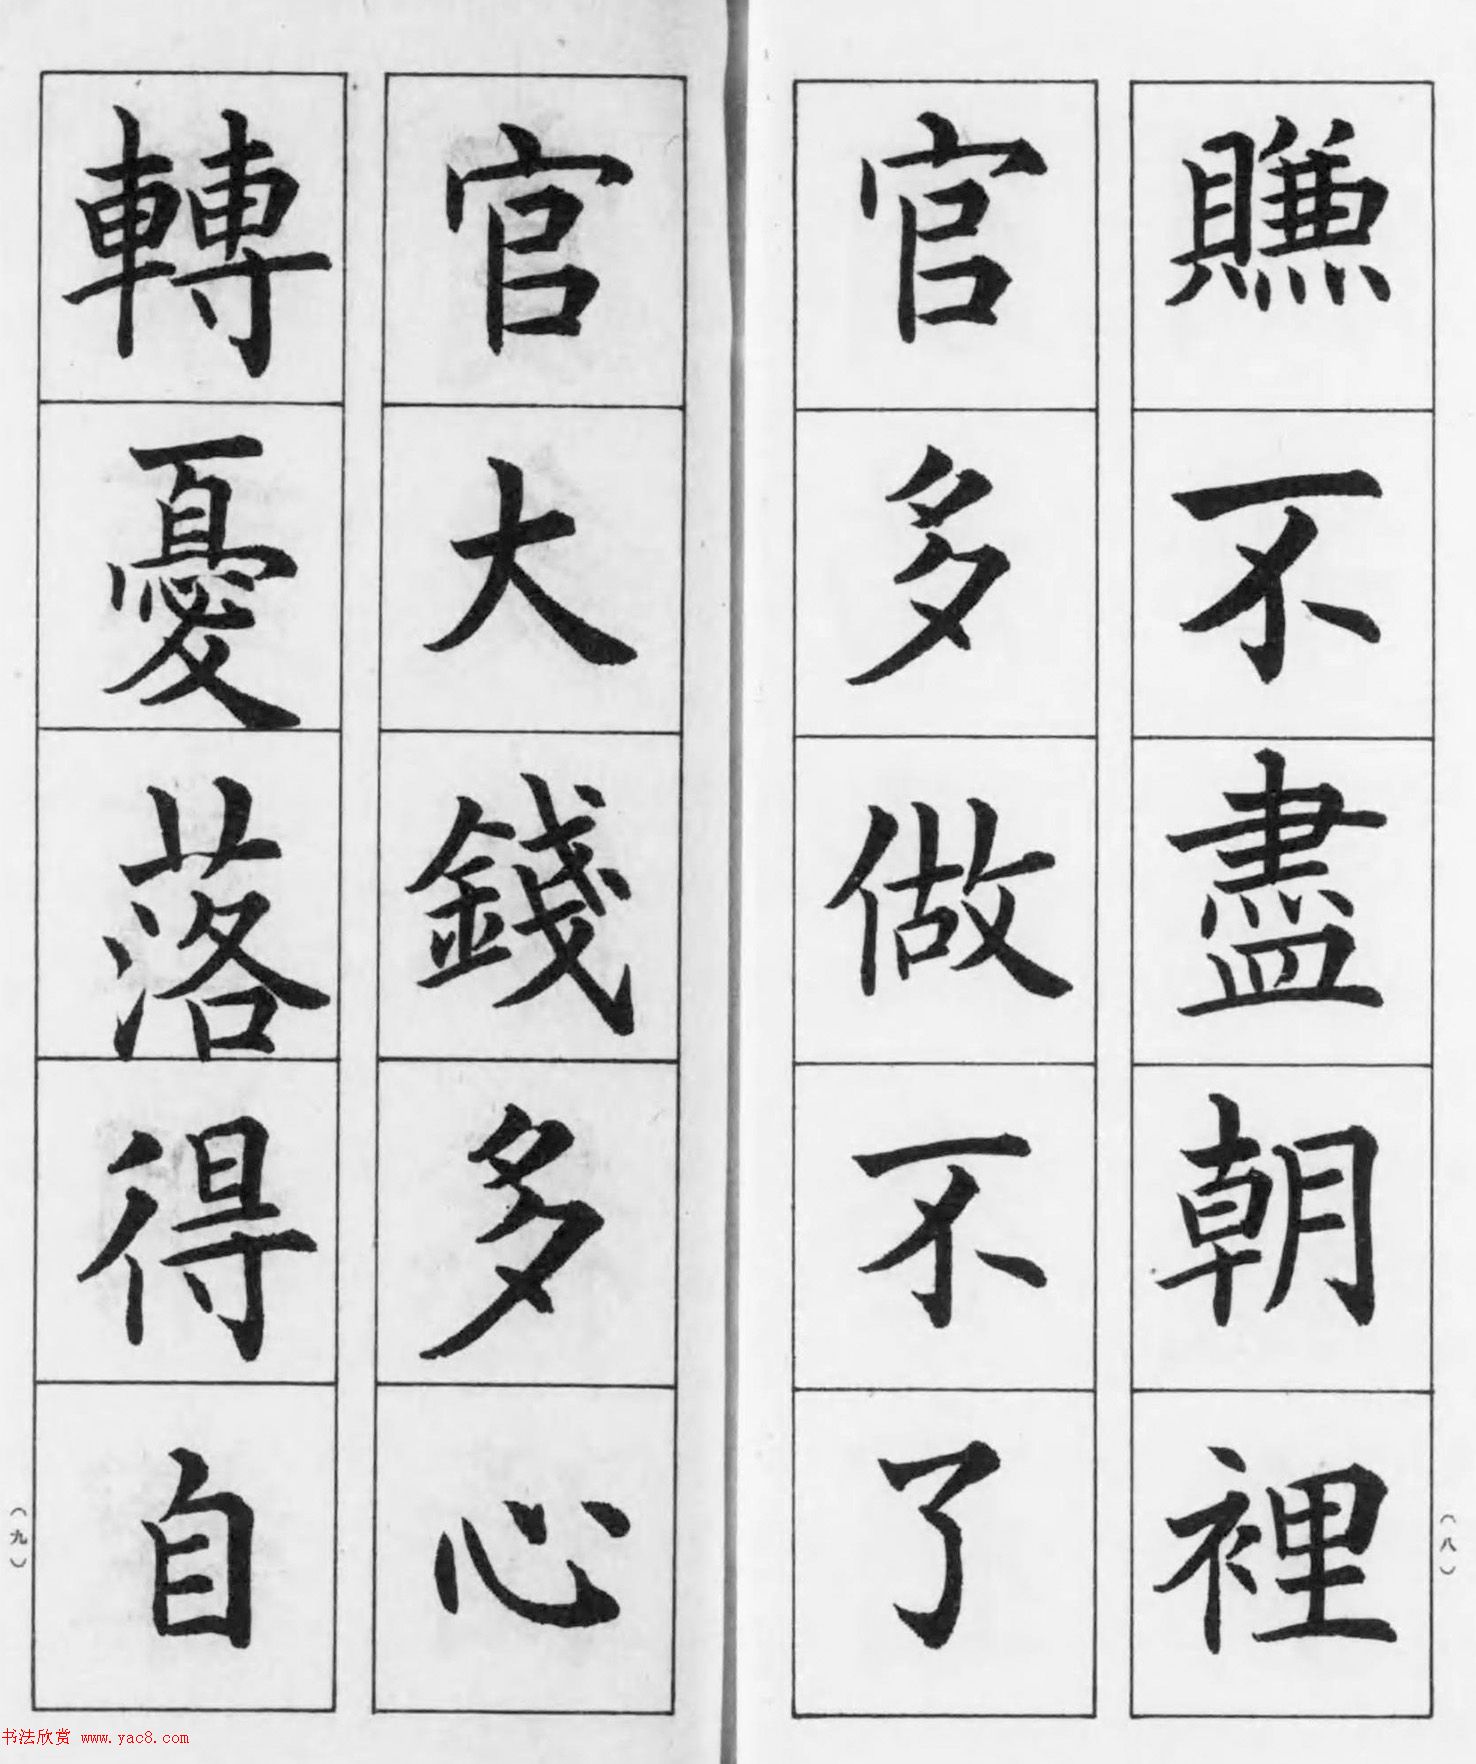 賺不盡朝裡
官多做不了
官大錢多心
轉憂落得自
（八）
（九）
书法欣赏 www.yac8.com